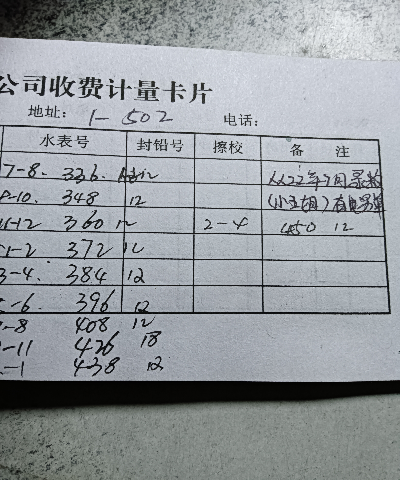 公司收费计量卡片
地址: 1-502 电话:
水表号 封铅号 擦校 备 注
7-8. 336. 12 从22年7月
8-10. 348 12
11-12 360 12 2-4 450 12
1-2 372 12
3-4. 384 12
-6. 396 12
-8 408 12
-11 426 18
-1 438 12